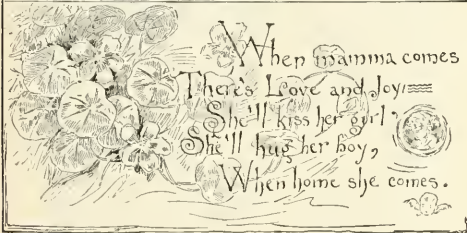 When mamma comes
There's Love and Joy,
She'll kiss her girl,
She'll hug her boy,
When home she comes.